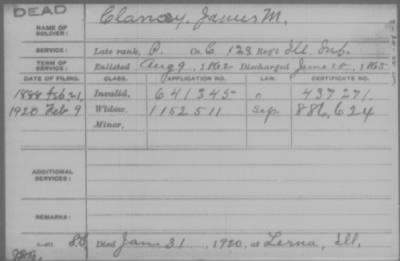 DEAD
NAME OF SOLDIER: Clancy, James M.
SERVICE: Late rank, P. Co. C 123 Reg't Ill. Inf.
TERM OF SERVICE: Enlisted Aug 9, 1862 Discharged June 28, 1865
DATE OF FILING. CLASS. APPLICATION NO. LAW. CERTIFICATE NO.
1888 Feb. 21, Invalid, 641345 437271.
1920 Feb 9 Widow, 1152511 Sep 886,624
Minor,
ADDITIONAL SERVICES:
REMARKS:
Died Jan. 31, 1920, at Lerna, Ill.